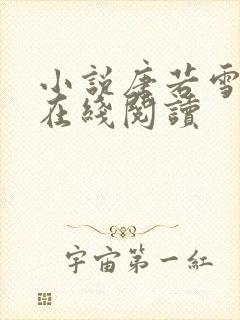 小說唐若雪
在綫閱讀
宇宙第一紅